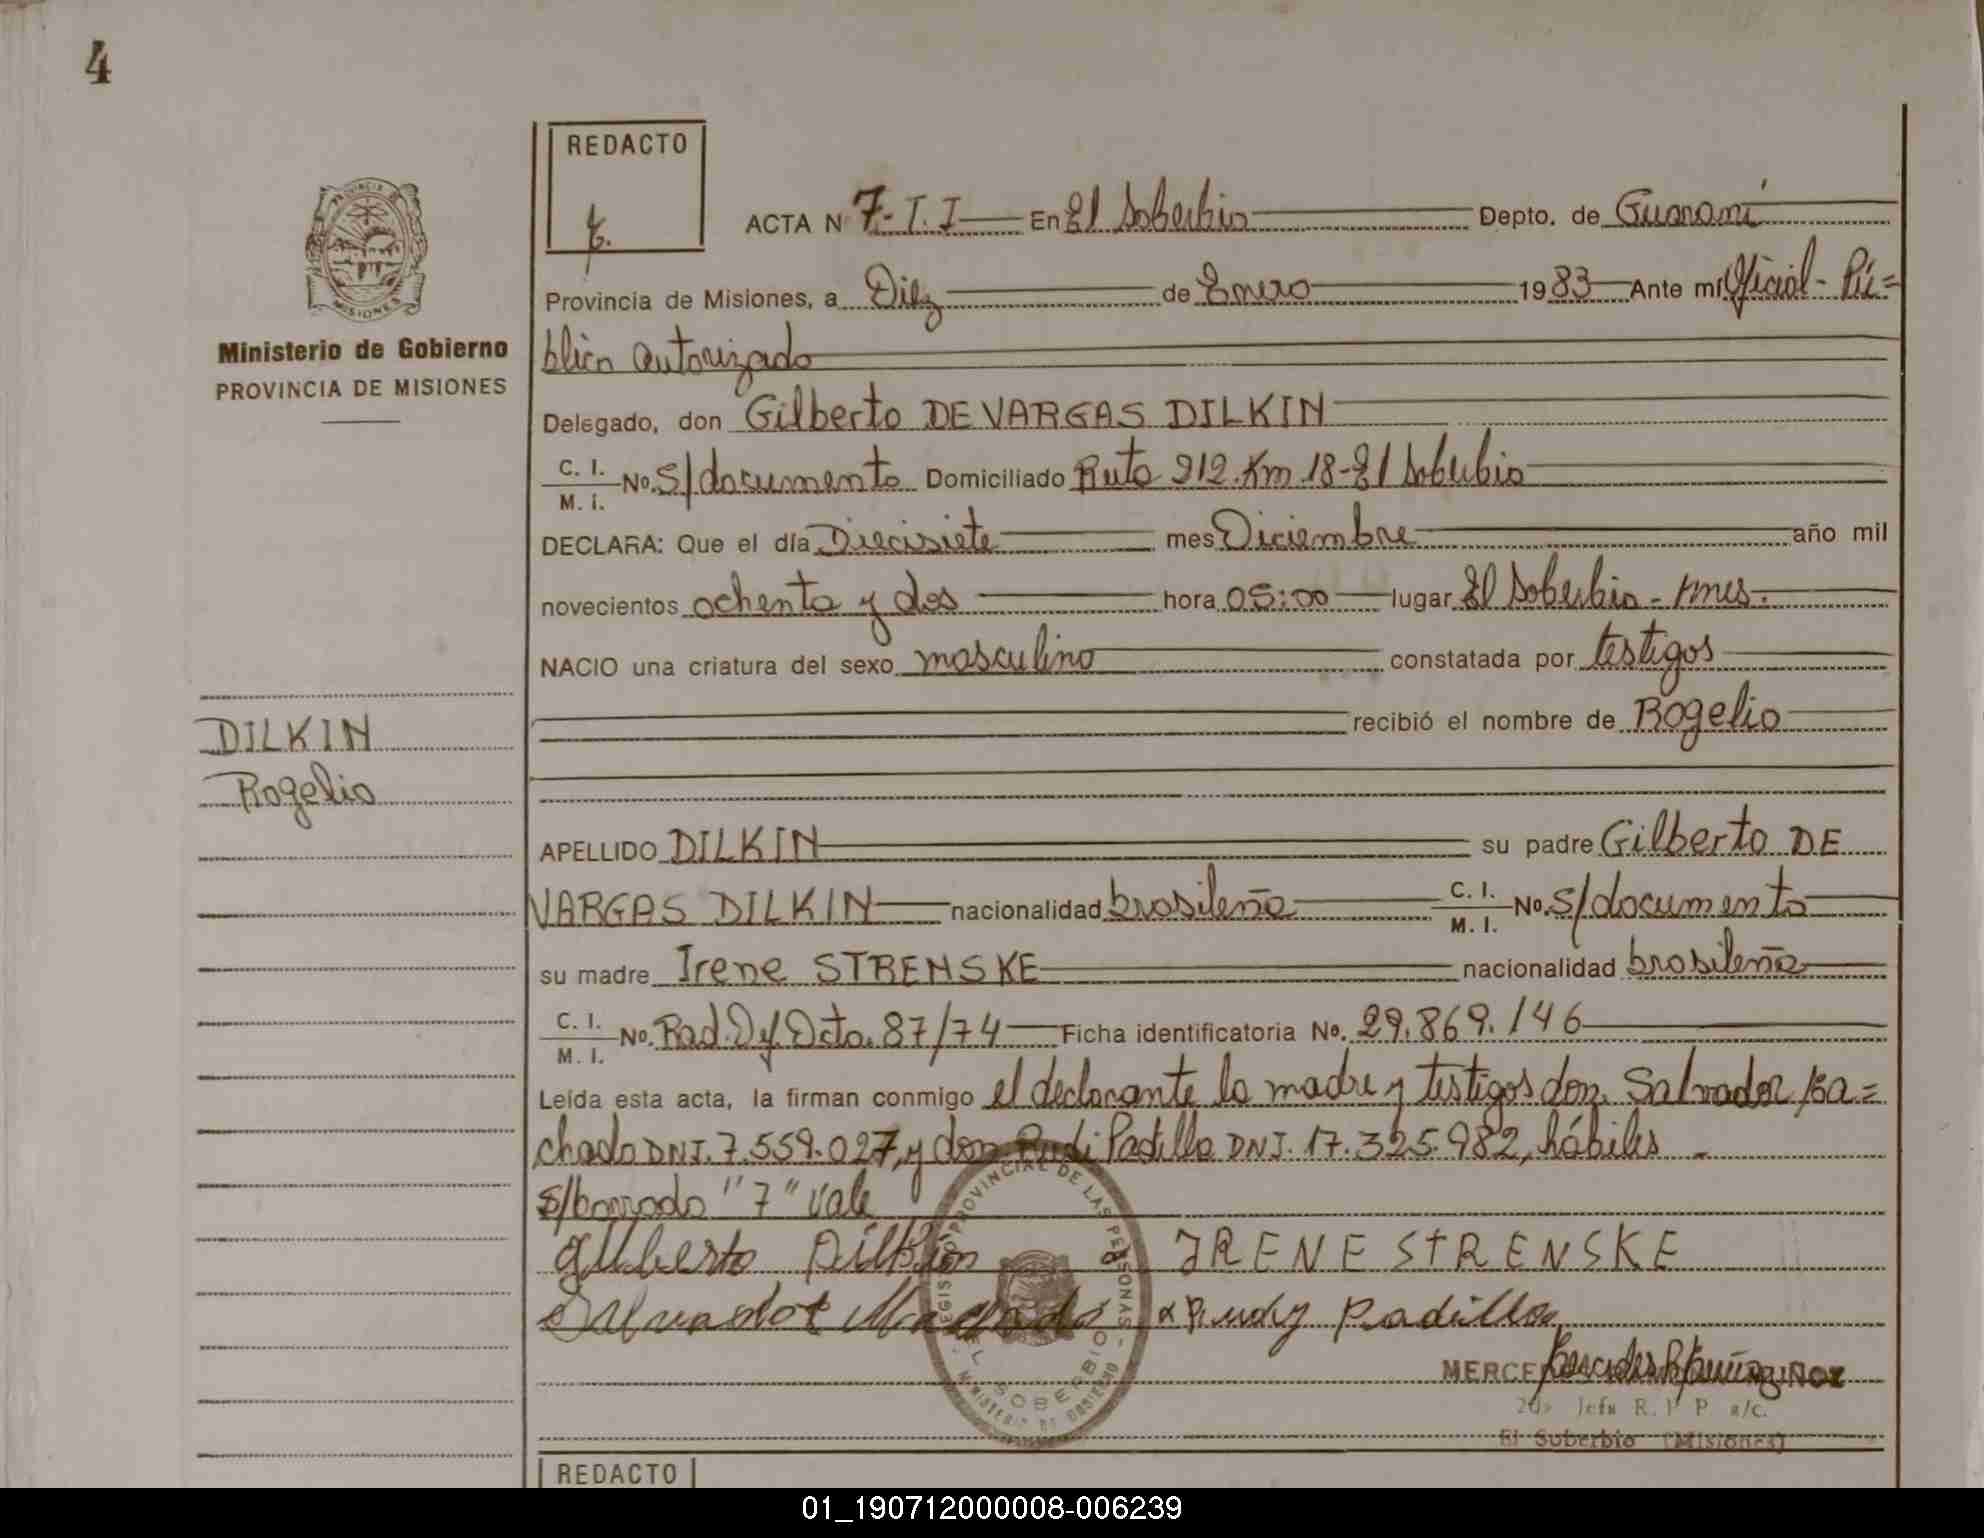 4
REDACTO
ACTA N 7-T.I En El Soberbio Depto. de Guaraní
Provincia de Misiones, a Diez de Enero 1983 Ante mí Oficial - Pú=
blico autorizado
Delegado, don Gilberto DE VARGAS DILKIN
C. I.
M. I. No. S/documento Domiciliado Ruta 212. Km. 18-El Soberbio
DECLARA: Que el día Diecisiete mes Diciembre año mil
novecientos ochenta y dos hora 05:00 lugar El Soberbio - Mnes.
NACIO una criatura del sexo masculino constatada por testigos
recibió el nombre de Rogelio
APELLIDO DILKIN su padre Gilberto DE
VARGAS DILKIN nacionalidad brasileña C. I.
M. I. No. S/documento
su madre Irene STRENSKE nacionalidad brasileña
C. I.
M. I. No. Rad. Df. Dcto. 87/74 Ficha identificatoria No. 29.869.146
Leída esta acta, la firman conmigo el declarante la madre y testigos don Salvador Ma=
chado DNI. 7.559.027, y don Rudi Padilla DNI. 17.325.982, hábiles -
S/borrado "7" Vale
Gilberto Dilkin IRENE STRENSKE
Salvador Machado Rudy Padilla
MERCE
2da Jefa R. P. P. a/c.
El Soberbio (Misiones)
REGISTRO PROVINCIAL DE LAS PERSONAS - MINISTERIO DE GOBIERNO
EL SOBERBIO
PROVINCIA DE
MISIONES
Ministerio de Gobierno
PROVINCIA DE MISIONES
DILKIN
Rogelio
REDACTO
01_190712000008-006239